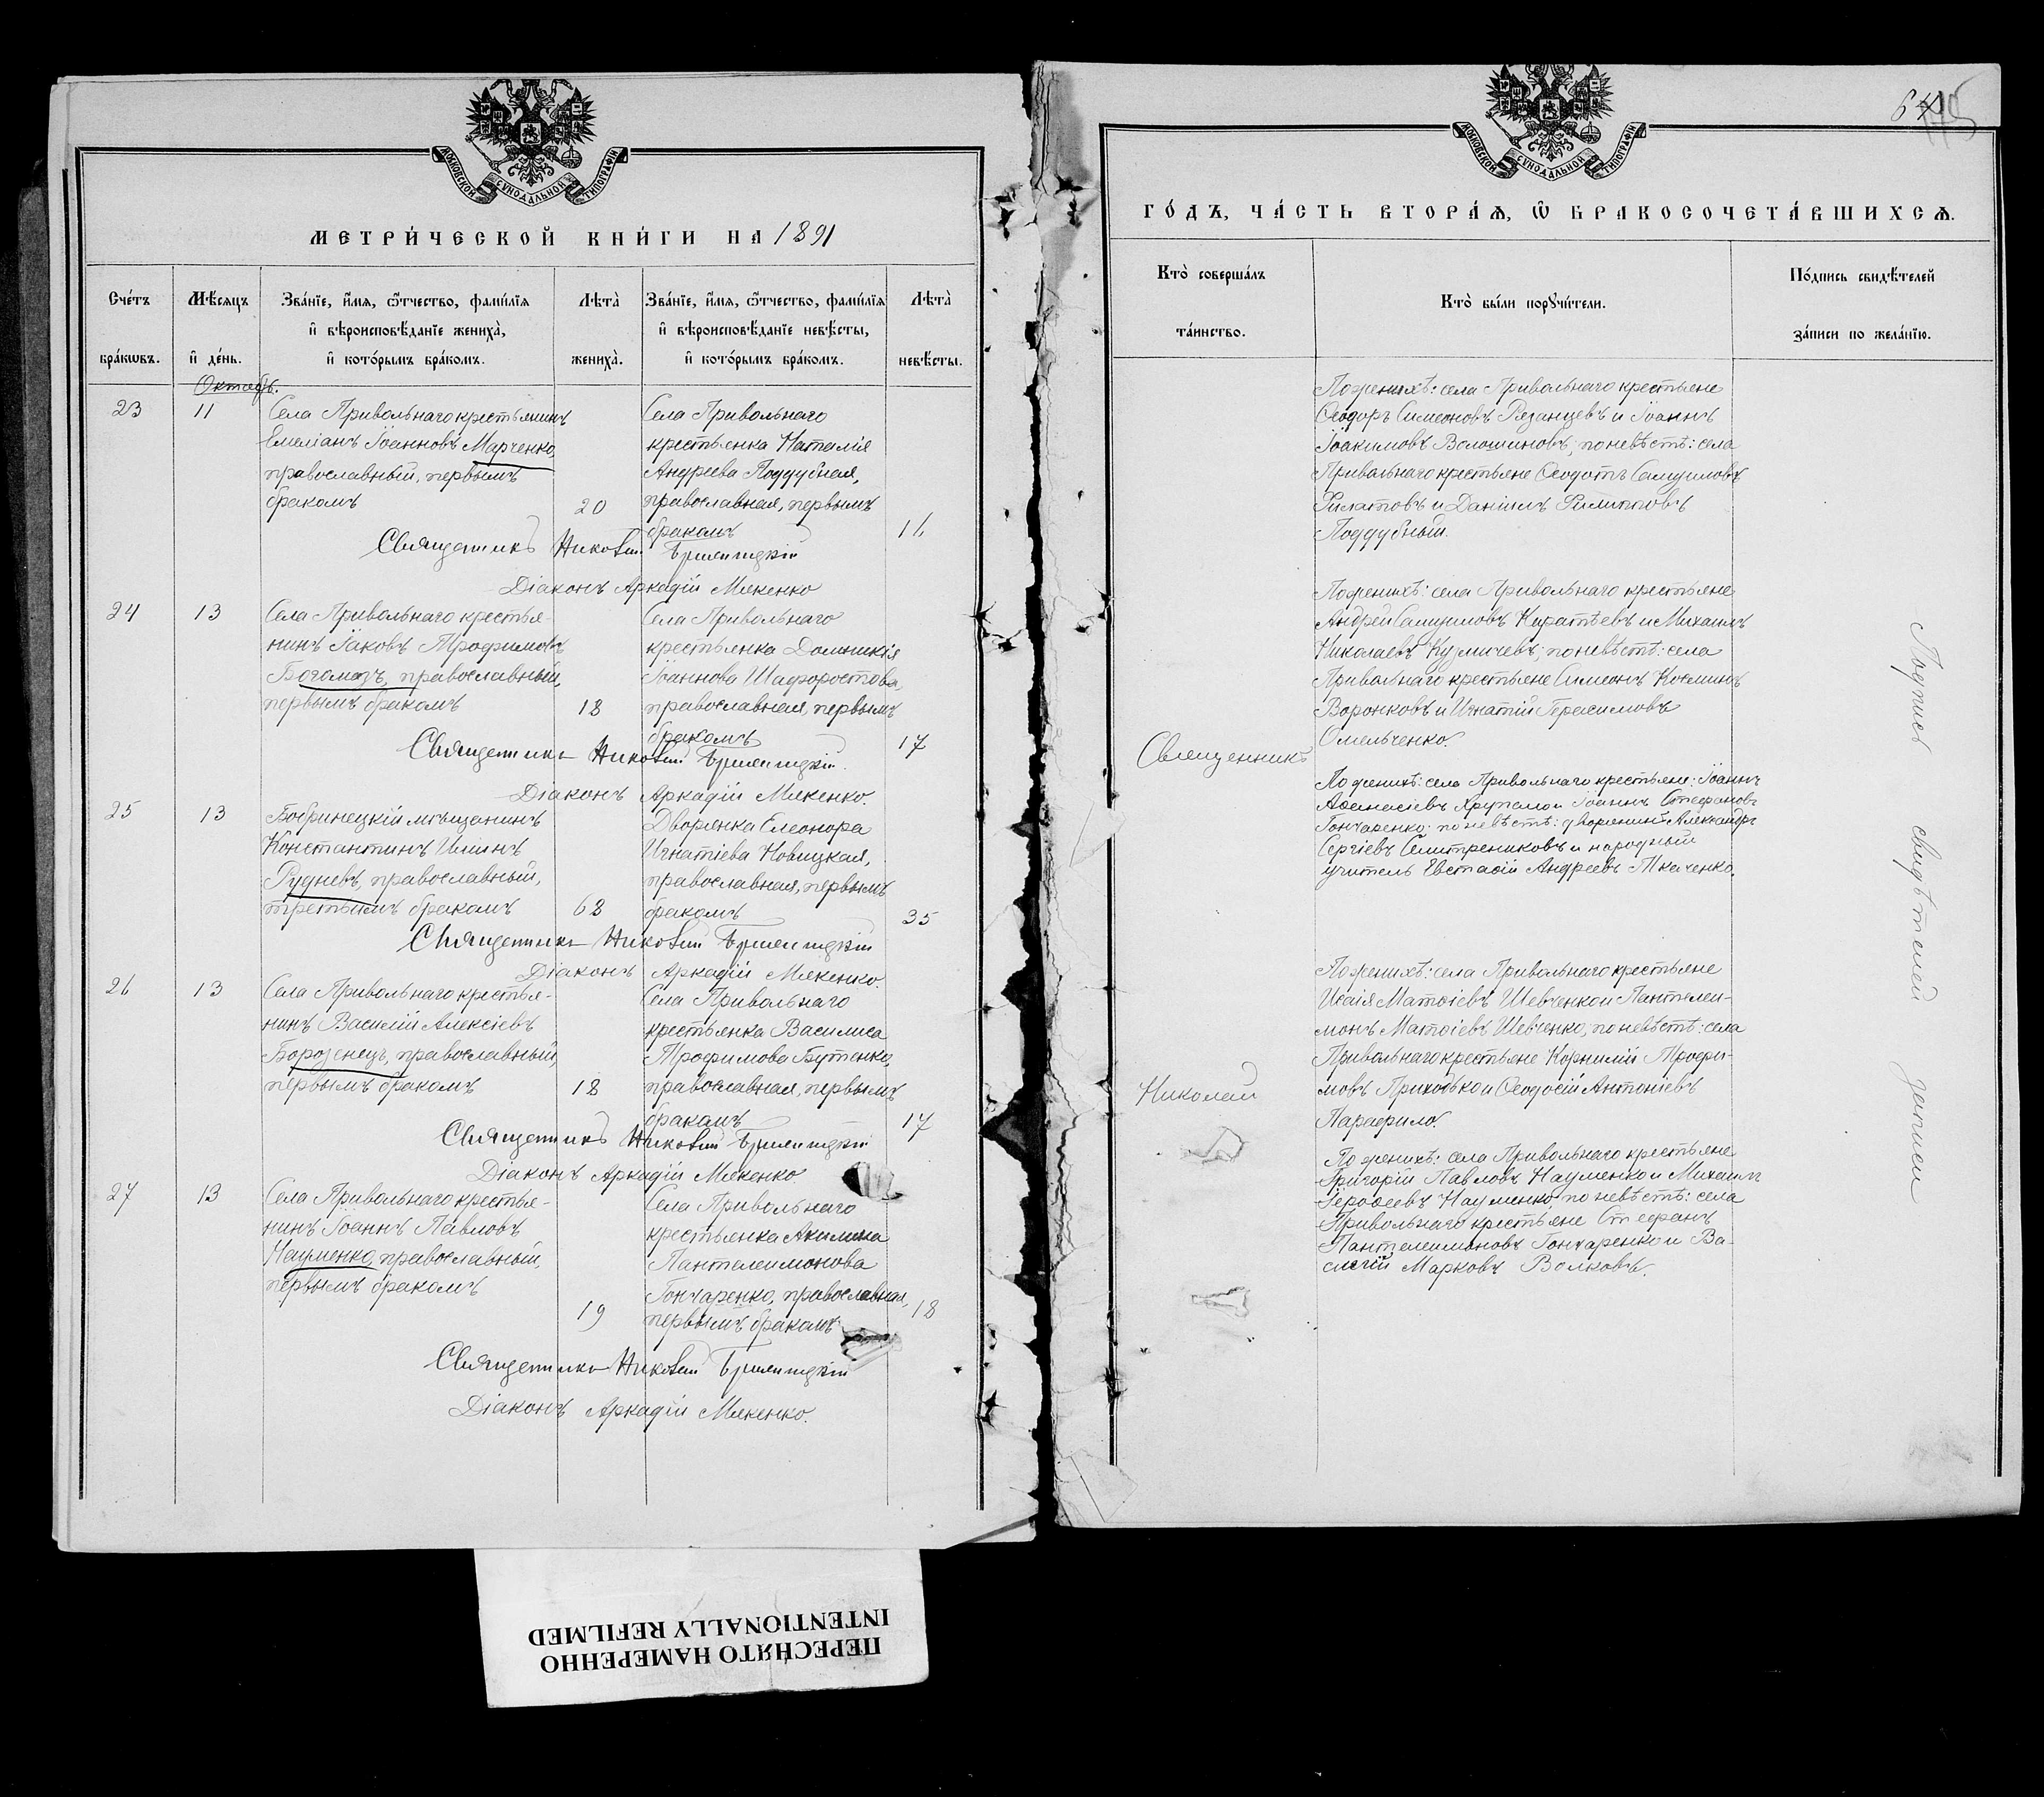 МОСКОВСКОЙ СѴНОДАЛЬНОЙ ТИПОГРАФІИ
МЕТРИ́ЧЕСКОЙ КНИ́ГИ НА 1891
Сче́тъ бра́кωвъ.
Мѣ́сяцъ и҆ де́нь.
Зва́нїе, и҆́мѧ, ѻ҆́тчество, фами́лїѧ и҆ вѣроисповѣ́данїе жениха̀, и҆ кото́рымъ бра́комъ.
Лѣта̀ жениха̀.
Зва́нїе, и҆́мѧ, ѻ҆́тчество, фами́лїѧ и҆ вѣроисповѣ́данїе невѣ́сты, и҆ кото́рымъ бра́комъ.
Лѣта̀ невѣ́сты.
Октябр.
23
11
Села Привольнаго крестьянинъ
Емеліанъ Іоанновъ Марченко,
православный, первымъ
бракомъ
20
Села Привольнаго
крестьянка Наталія
Андреева Поддубная,
православная, первымъ
бракомъ
16
Священникъ Николай
Діаконъ Аркадій Мякенко
24
13
Села Привольнаго крестья-
нинъ Іаковъ Трофимовъ
Богомазъ, православный,
первымъ бракомъ
18
Села Привольнаго
крестьянка Домникія
Іоаннова Шафоростова,
православная, первымъ
бракомъ
17
Священникъ Николай
Діаконъ Аркадій Мякенко.
25
13
Бобринецкій мѣщанинъ
Константинъ Иліинъ
Рудневъ, православный,
третьимъ бракомъ
68
Дворянка Елеонора
Игнатіева Новицкая,
православная, первымъ
бракомъ
35
Священникъ Николай
Діаконъ Аркадій Мякенко.
26
13
Села Привольнаго крестья-
нинъ Василій Алексіевъ
Борозенецъ, православный,
первымъ бракомъ
18
Села Привольнаго
крестьянка Василиса
Трофимова Бутенко,
православная, первымъ
бракомъ
17
Священникъ Николай
Діаконъ Аркадій Мякенко.
27
13
Села Привольнаго крестья-
нинъ Іоаннъ Павловъ
Науменко, православный,
первымъ бракомъ
19
Села Привольнаго
крестьянка Акилина
Пантелеимонова
Гончаренко, православная,
первымъ бракомъ
18
Священникъ Николай
Діаконъ Аркадій Мякенко.
МОСКОВСКОЙ СѴНОДАЛЬНОЙ ТИПОГРАФІИ
ГО́ДЪ, ЧА́СТЬ ВТОРА́Ѧ, Ѽ БРАКОСОЧЕТА́ВШИХСѦ.
Кто̀ соверша́лъ та́инство.
Кто̀ бы́ли порꙋчи́тели.
По́дпись свидѣ́телей за́писи по жела́нїю.
По женихѣ: села Привольнаго крестьяне
Ѳеодоръ Симеоновъ Рязанцевъ и Іоаннъ
Іоакимовъ Волошиновъ; по невѣстѣ: села
Привольнаго крестьяне Ѳеодотъ Самуиловъ
Филатовъ и Даніилъ Филипповъ
Поддубный.
По женихѣ: села Привольнаго крестьяне
Андрей Самуиловъ Каратѣевъ и Михаилъ
Николаевъ Кузмичевъ; по невѣстѣ: села
Привольнаго крестьяне Симеонъ Косминъ
Воронковъ и Игнатій Герасимовъ
Омельченко.
По женихѣ: села Привольнаго крестьяне: Іоаннъ
Аѳанасіевъ Хрупало и Іоаннъ Стефановъ
Гончаренко; по невѣстѣ: дворянинъ Александръ
Сергіевъ Селитрениковъ и народный
учитель Евстаѳій Андреевъ Ткаченко.
По женихѣ: села Привольнаго крестьяне
Исаія Матѳіевъ Шевченко и Пантелеи-
монъ Матѳіевъ Шевченко, по невѣстѣ: села
Привольнаго крестьяне Корнилій Трофи-
мовъ Приходько и Ѳеодосій Антоніевъ
Парафило.
По женихѣ: села Привольнаго крестьяне
Григорій Павловъ Науменко и Михаилъ
Іероѳеевъ Науменко, по невѣстѣ: села
Привольнаго крестьяне Стефанъ
Пантелеимоновъ Гончаренко и Ва-
силій Марковъ Волковъ.
Священникъ
Николай
Подписъ свидѣтелей записи
ПЕРЕСНЯТО НАМЕРЕННО
INTENTIONALLY REFILMED